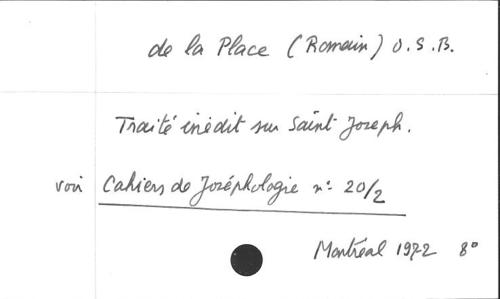 de la Place (Romain) O.S.B.
Traité inédit sur Saint Joseph.
voir Cahiers de Joséphologie n: 20/2
Montréal 1972 8°